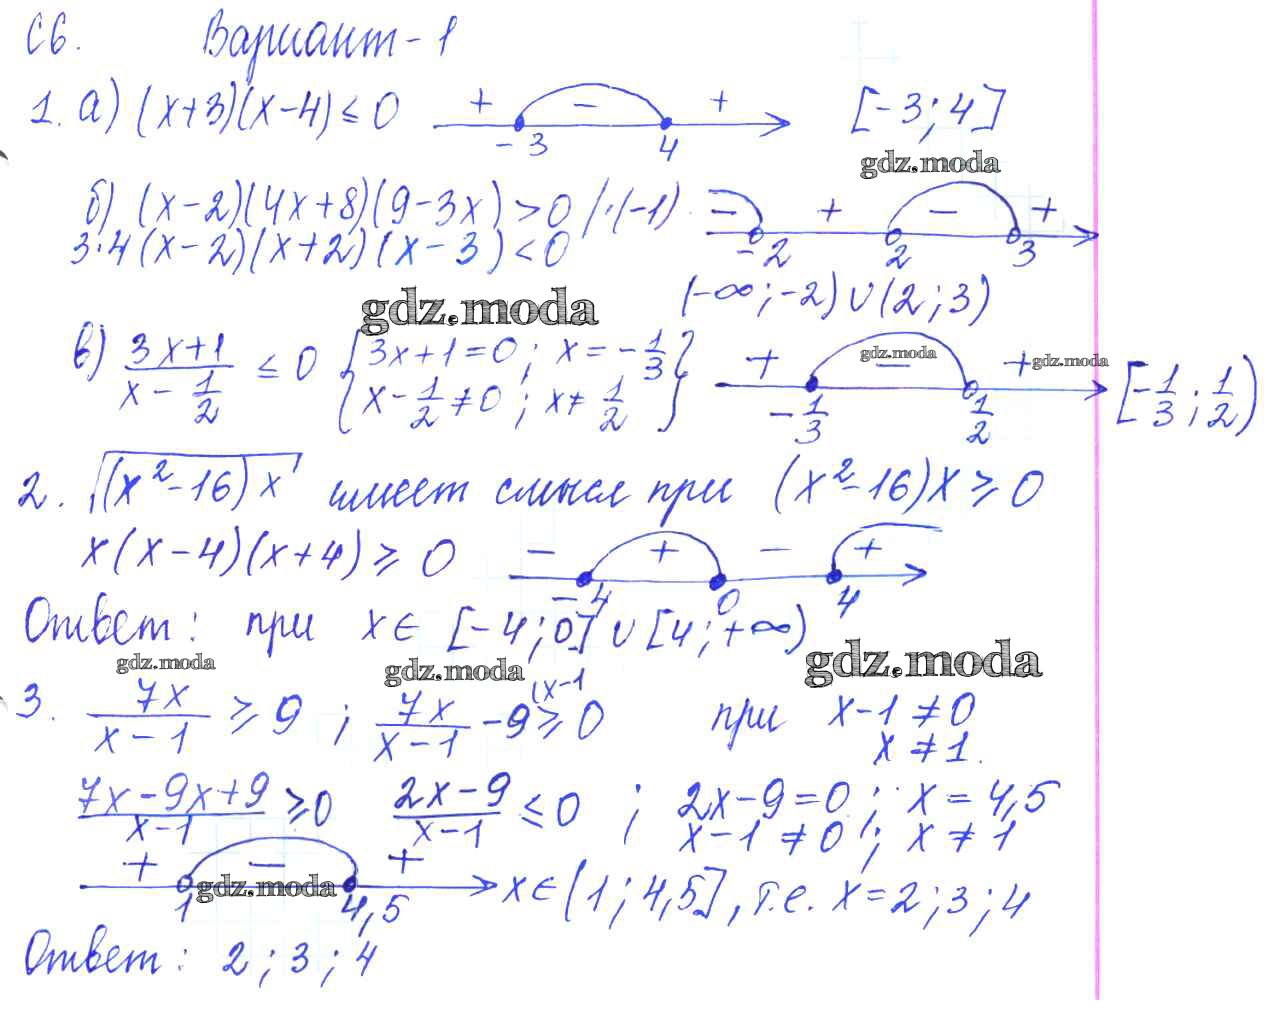 С6. Вариант-1
1. а) (x+3)(x-4) ≤ 0 + - + -3 4 [-3; 4]
gdz.moda
б) (x-2)(4x+8)(9-3x) > 0 /·(-1) - + - + -2 2 3
3·4(x-2)(x+2)(x-3) < 0
(-∞; -2) ∪ (2; 3)
gdz.moda
в) (3x+1)/(x - 1/2) ≤ 0 { 3x+1=0; x = -1/3 } + - + -1/3 1/2 [-1/3; 1/2)
{ x - 1/2 ≠ 0; x ≠ 1/2 }
gdz.moda gdz.moda
2. √((x²-16)x) имеет смысл при (x²-16)x ≥ 0
x(x-4)(x+4) ≥ 0 - + - + -4 0 4
Ответ: при x ∈ [-4; 0] ∪ [4; +∞)
gdz.moda gdz.moda gdz.moda
3. 7x/(x-1) ≥ 9; 7x/(x-1) - 9 (x-1 ≥ 0 при x-1 ≠ 0
x ≠ 1.
(7x-9x+9)/(x-1) ≥ 0 (2x-9)/(x-1) ≤ 0; 2x-9=0; x = 4,5
x-1 ≠ 0; x ≠ 1
+ - + 1 4,5 x ∈ (1; 4,5], т.е. x = 2; 3; 4
gdz.moda
Ответ: 2; 3; 4